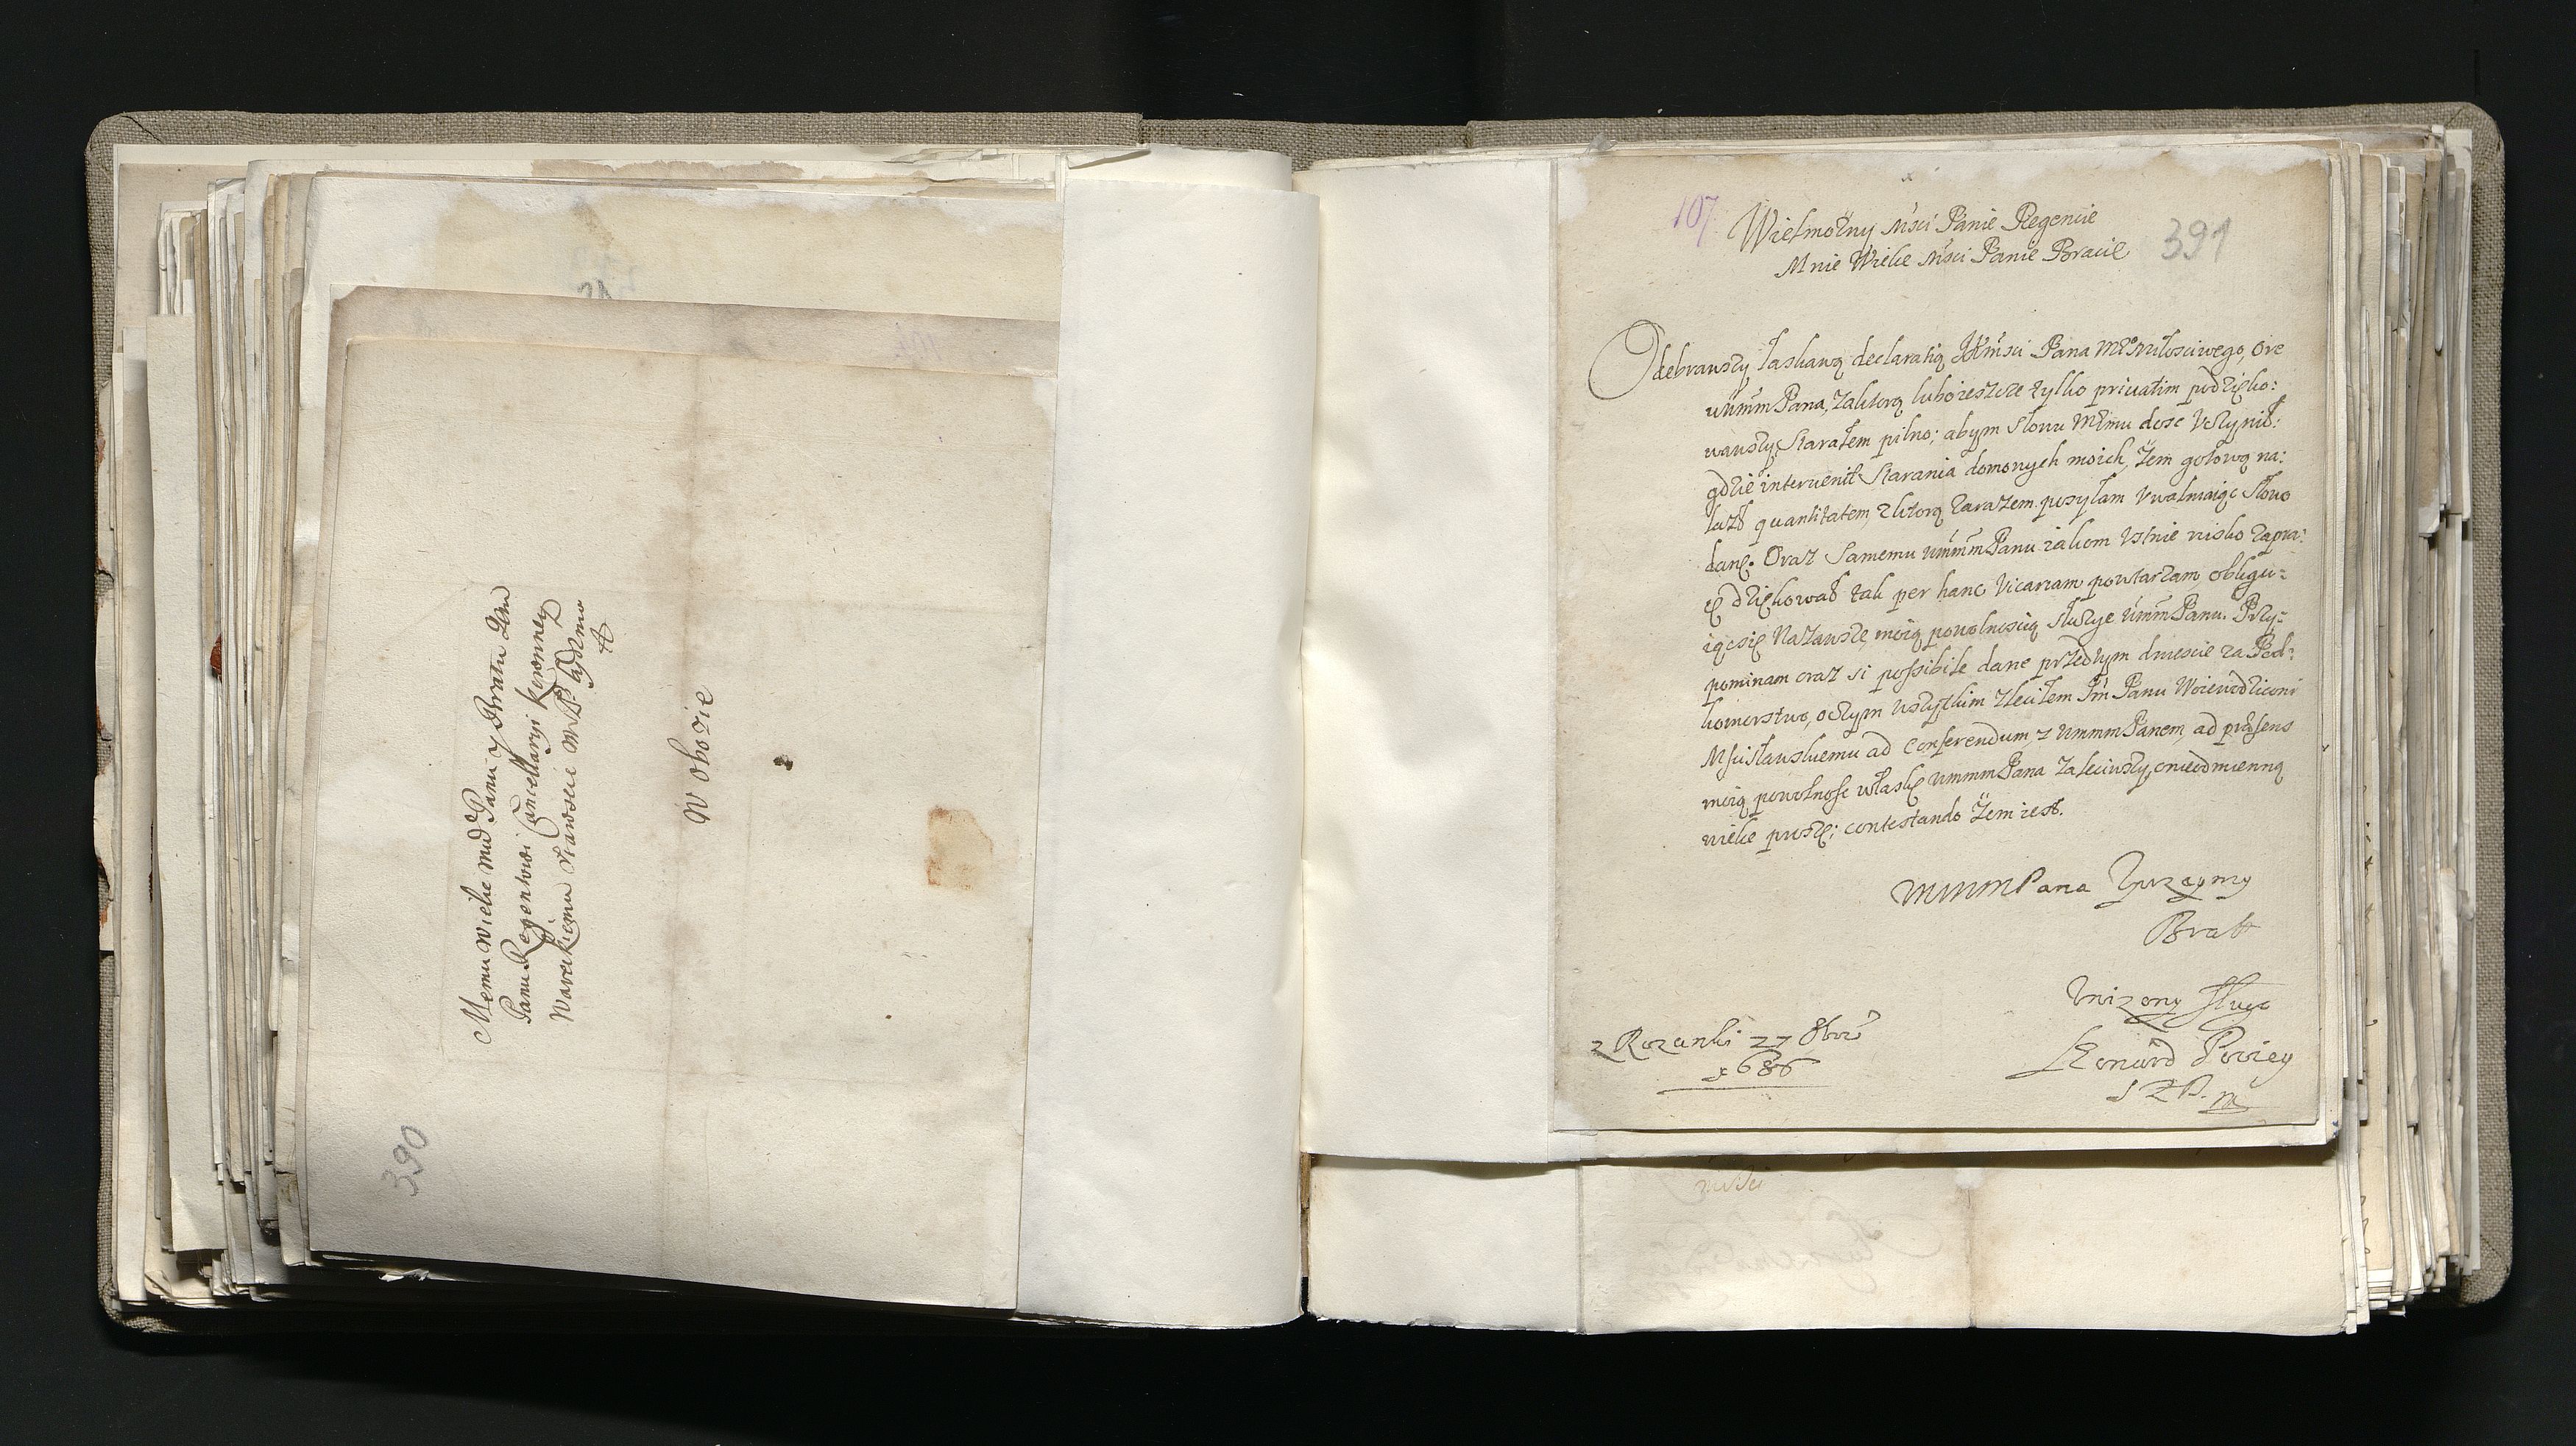 Memu wielce md Panu y Bratu Jem
Panu Regentowi Cancellaryi Koronney
Wareckiemu Staroscie
W obozie
390
107.
391
Wielmożny Mści Panie Regencie
Mnie Wielce Mści Panie Bracie
Odebrawszy łaskawą declaratią JKMsci Pana Mego Miłosciwego, ore
WMMPana, zaktorą lubo ieszcze tylko priuatim podzięko:
wawszy, Starałem pilno; abym Słowu memu dosc Uczynił:
gdzie interuenit Starania domonych moich, żem gotową na:
lazł quantitatem, zktorą zarazem posyłam Uwalniaiąc Słowo
dane. Oraz Samemu WMMMPanu iakom Ustnie nisko zapra:
cę dziękował tak per hanc Vicariam powtarzam, obligu:
iącsię Nazawsze moią powolnoscią słuzyc WMMPanu. Przy:
pominam oraz si possibile dane przedtym dwiescie za Pod:
komorstwo, oczym wszytkim zleciłem Jm Panu Woiewodzicowi
Mscisławskiemu ad conferendum z WMMMPanem, ad præsens
moią powolnosc właskę WMMMPana zaleciwszy, onieodmienną
wielce proszę; contestando żem iest.
WMMMPana Uprzeymy
Bratt
Unizony Sługa
Leonard Pociey
z Rozanki 27 8bra
1686